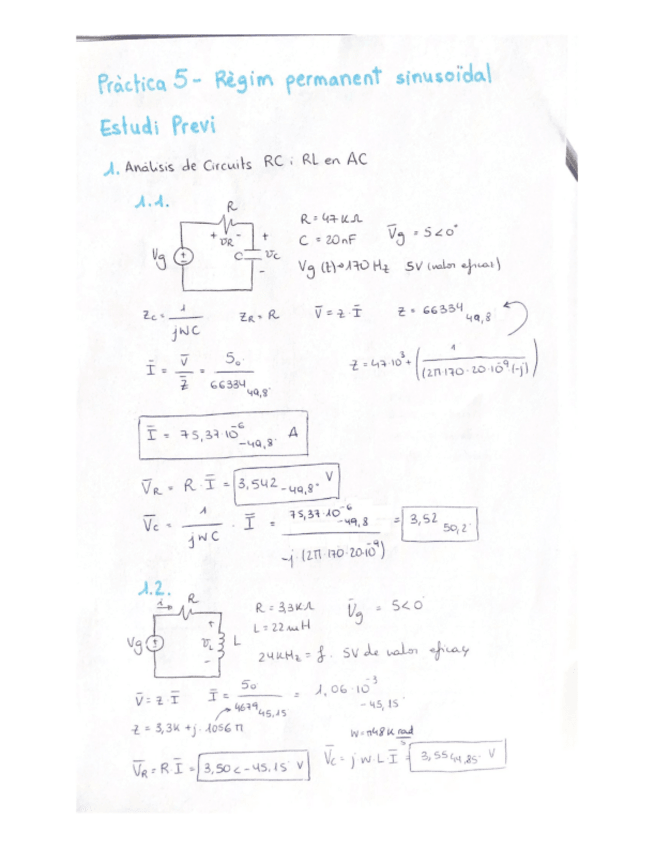 Pràctica 5 - Règim permanent sinusoïdal
Estudi Previ
1. Anàlisis de Circuits RC i RL en AC
1.1.
R
+ VR -
Vg
C
+
VC
-
R = 47 KΩ
C = 20 nF
V̄g = 5∠0°
Vg (t) → 170 Hz 5V (valor eficaç)
Zc = 1 / jWC
ZR = R
V̄ = z · Ī
Z = 66334 49,8°
Ī = V̄ / Z̄ = 5₀ / 66334 49,8°
Z = 47·10³ + (1 / (2Π·170·20·10⁻⁹(-j)))
Ī = 75,37·10⁻⁶ -49,8° A
V̄R = R · Ī = 3,542 -49,8° V
V̄c = 1 / jWC · Ī = 75,37·10⁻⁶ -49,8 / -j·(2Π·170·20·10⁻⁹) = 3,52 50,2°
1.2.
i
R
Vg
+
VL
-
L
R = 3,3 KΩ
L = 22 mH
V̄g = 5<0°
24 KHz = f. 5V de valor eficaç
V̄ = z · Ī
Ī = 5₀ / 4679 45,15 = 1,06·10⁻³ -45,15°
Z = 3,3K + j · 1056 Π
W = π48 K rad/s
V̄R = R · Ī = 3,50 < -45.15° V
V̄c = j W · L · Ī = 3,55 44,85° V